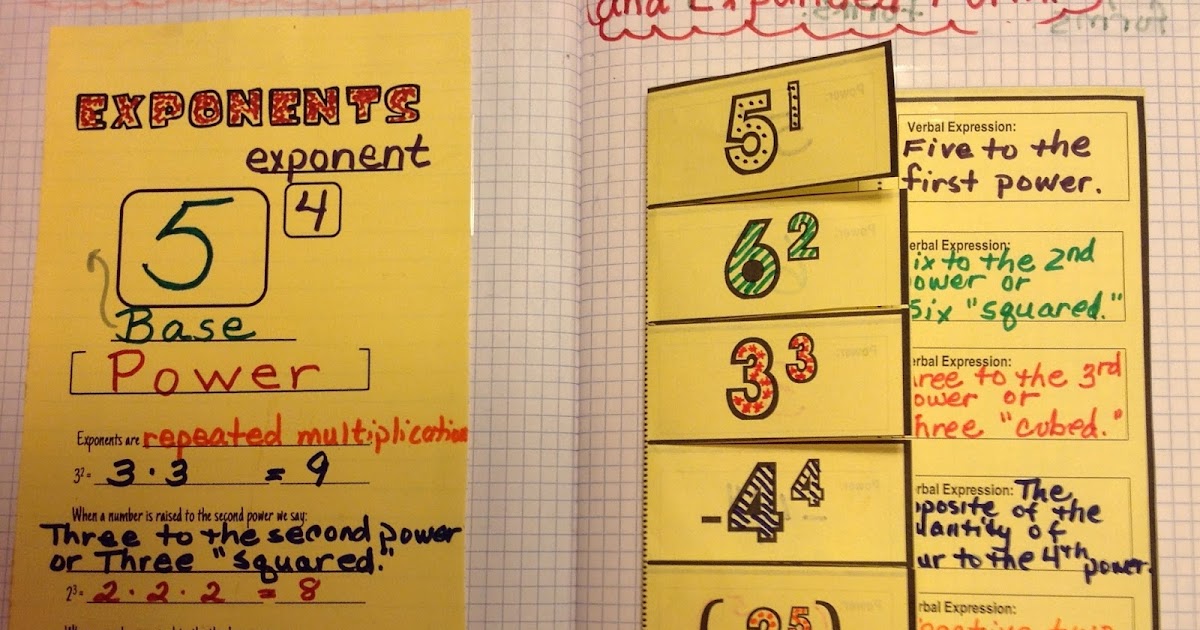 EXPONENTS
exponent
5 4
Base
Power
Exponents are repeated multiplication
3²= 3 · 3 = 9
When a number is raised to the second power we say:
Three to the second power
or Three "squared."
2³= 2 · 2 · 2 = 8
and Expanded
5¹
Verbal Expression:
Five to the
first power.
6²
erbal Expression:
ix to the 2nd
ower or
Six "squared."
3³
erbal Expression:
hree to the 3rd
ower or
hree "cubed."
-4⁴
rbal Expression: The
pposite of the
uantity of
ur to the 4th power.
rbal Expression: